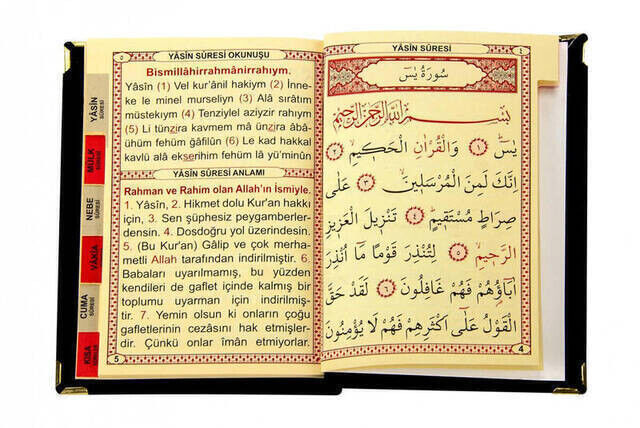 YÂSİN SÛRESİ
٤
سُورَةُ يٰسٓ
بِسْمِ اللّٰهِ الرَّحْمٰنِ الرَّحِيمِ
يٰسٓ ﴿١﴾ وَالْقُرْاٰنِ الْحَك۪يمِ ﴿٢﴾
اِنَّكَ لَمِنَ الْمُرْسَل۪ينَ ﴿٣﴾ عَلٰى
صِرَاطٍ مُسْتَق۪يمٍ ﴿٤﴾ تَنْز۪يلَ الْعَز۪يزِ
الرَّح۪يمِ ﴿٥﴾ لِتُنْذِرَ قَوْمًا مَٓا اُنْذِرَ
اٰبَٓاؤُ۬هُمْ فَهُمْ غَافِلُونَ ﴿٦﴾ لَقَدْ حَقَّ
الْقَوْلُ عَلٰٓى اَكْثَرِهِمْ فَهُمْ لَا يُؤْمِنُونَ
4
٥
YÂSİN SÛRESİ OKUNUŞU
Bismillâhirrahmânirrahıym.
Yâsîn (1) Vel kur'ânil hakiym (2) İnne-
ke le minel murseliyn (3) Alâ sırâtım
müstekıym (4) Tenziylel aziyzir rahıym
(5) Li tünzira kavmem mâ ünzira âbâ-
ühüm fehüm gâfilûn (6) Le kad hakkal
kavlü alâ ekserihim fehüm lâ yü'minûn
YÂSİN SÛRESİ ANLAMI
Rahman ve Rahim olan Allah'ın İsmiyle.
1. Yâsîn, 2. Hikmet dolu Kur'an hakkı
için, 3. Sen şüphesiz peygamberler-
densin. 4. Dosdoğru yol üzerindesin.
5. (Bu Kur'an) Gâlip ve çok merha-
metli Allah tarafından indirilmiştir. 6.
Babaları uyarılmamış, bu yüzden
kendileri de gaflet içinde kalmış bir
toplumu uyarman için indirilmiş-
tir. 7. Yemin olsun ki onların çoğu
gafletlerinin cezâsını hak etmişler-
dir. Çünkü onlar îmân etmiyorlar.
5
YÂSİN
SÛRESİ
MÜLK
SÛRESİ
NEBE
SÛRESİ
VÂKIA
CUMA
SÛRESİ
KISA
SÛRELER